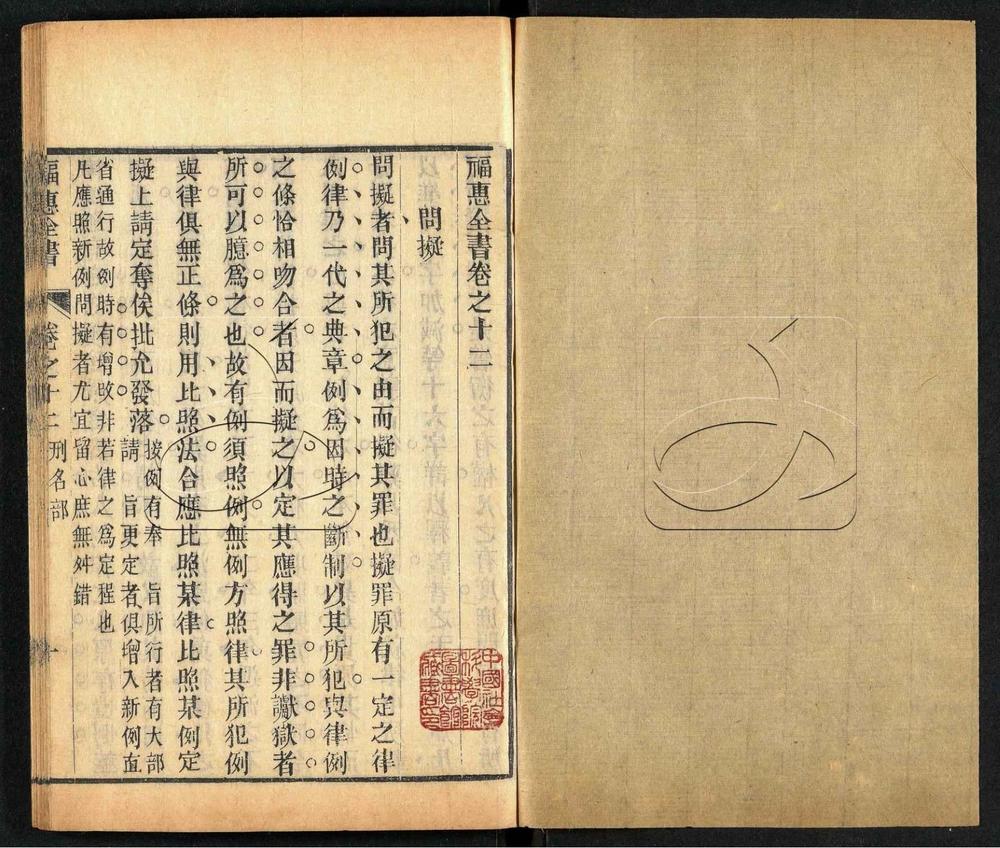 福惠全書卷之十二
問擬
問擬者問其所犯之由而擬其罪也擬罪原有一定之律
例律乃一代之典章例爲因時之斷制以其所犯與律例
之條恰相吻合者因而擬之以定其應得之罪非讞獄者
所可以臆爲之也故有例須照例無例方照律其所犯例
與律俱無正條則用比照法合應比照某律比照某例定
擬上請定奪俟批允發落
接例有奉 旨所行者有大部
請 旨更定者俱增入新例直
省通行故例時有增改非若律之爲定程也
凡應照新例問擬者尤宜留心庶無舛錯
福惠全書 卷之十二 刑名部 一